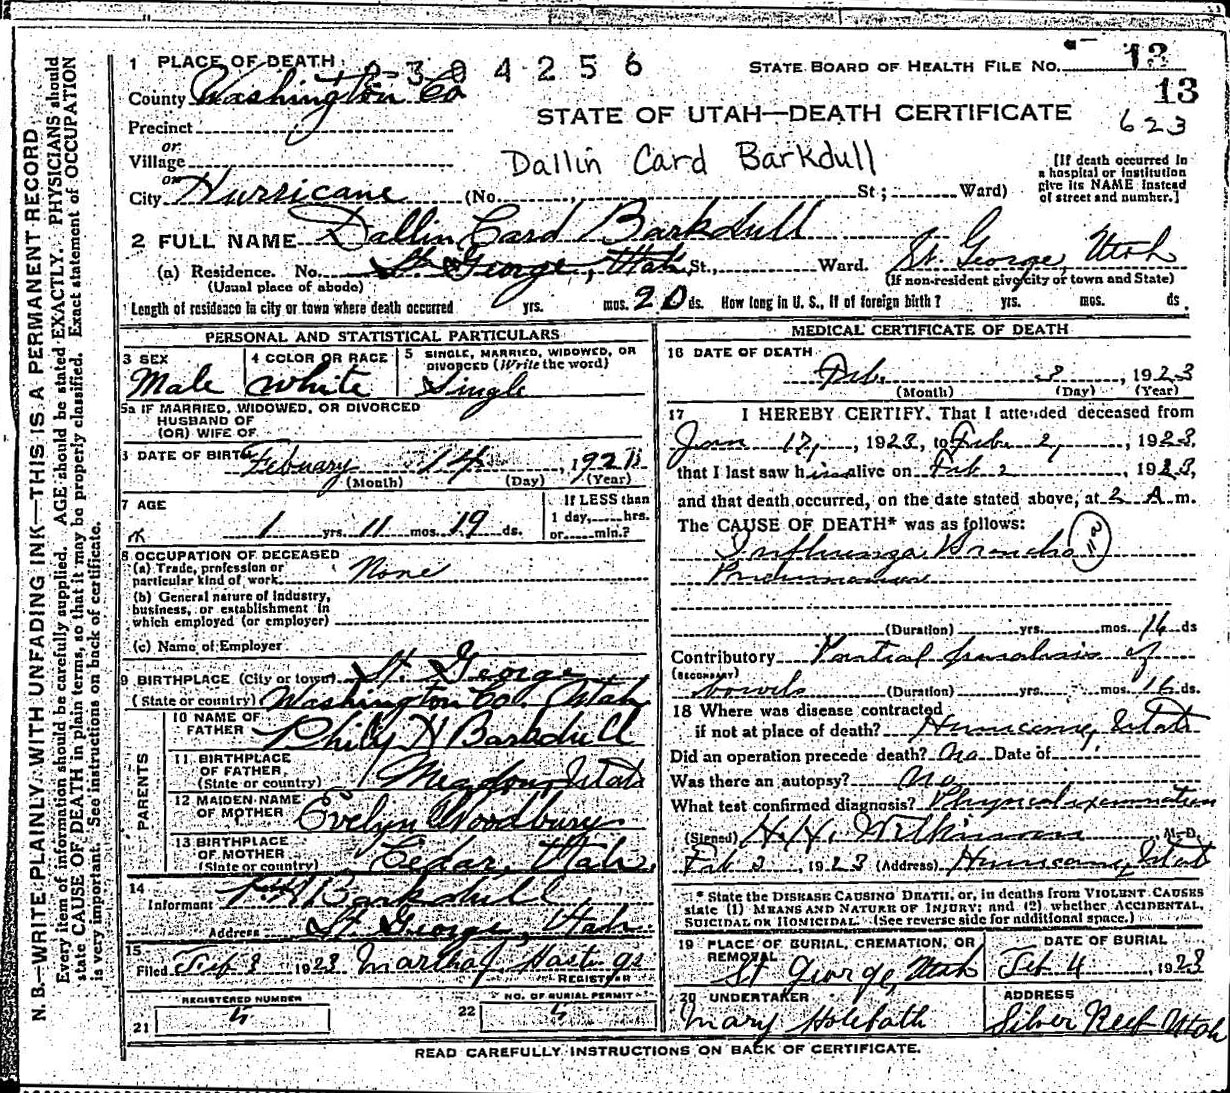 1 PLACE OF DEATH 2-304256
STATE BOARD OF HEALTH FILE NO. 13
County Washington Co
13
STATE OF UTAH—DEATH CERTIFICATE
623
Precinct
or
Village
Dallin Card Barkdull
[If death occurred in a hospital or institution give its NAME instead of street and number.]
or
City Hurricane (No. , St; Ward)
2 FULL NAME Dallin Card Barkdull
(a) Residence. No. St. George, Utah St., Ward. St. George, Utah
(Usual place of abode) (If non-resident give city or town and State)
Length of residence in city or town where death occurred yrs. mos. 20 ds. How long in U. S., if of foreign birth? yrs. mos. ds.
PERSONAL AND STATISTICAL PARTICULARS
3 SEX 4 COLOR OR RACE 5 SINGLE, MARRIED, WIDOWED, OR DIVORCED (Write the word)
Male White Single
5a IF MARRIED, WIDOWED, OR DIVORCED
HUSBAND OF
(OR) WIFE OF
DATE OF BIRTH February 14, 1921
(Month) (Day) (Year)
7 AGE If LESS than
1 yrs. 11 mos. 19 ds. 1 day, hrs. or min.?
8 OCCUPATION OF DECEASED
(a) Trade, profession or particular kind of work None
(b) General nature of industry, business, or establishment in which employed (or employer)
(c) Name of Employer
9 BIRTHPLACE (City or town) St. George
(State or country) Washington Co. Utah
PARENTS
10 NAME OF FATHER Philip H Barkdull
11 BIRTHPLACE OF FATHER, (State or country) Meadow, Utah
12 MAIDEN NAME OF MOTHER Evelyn Woodbury
13 BIRTHPLACE OF MOTHER (State or country) Cedar, Utah
14 Informant P. H. Barkdull
Address St. George, Utah
15 Filed Feb 3 1923 Martha J. Hastings
REGISTRAR
REGISTERED NUMBER NO. OF BURIAL PERMIT
21 4 22 4
MEDICAL CERTIFICATE OF DEATH
16 DATE OF DEATH
Feb. 3, 1923
(Month) (Day) (Year)
17 I HEREBY CERTIFY, That I attended deceased from
Jan 17, 1923, to Feb 2, 1923,
that I last saw him alive on Feb 2 1923,
and that death occurred, on the date stated above, at 2 A m.
The CAUSE OF DEATH* was as follows:
Influenza Broncho
Pneumonia
(Duration) yrs. mos. 16 ds
Contributory Partial paralysis of
(SECONDARY) bowels (Duration) yrs. mos. 16 ds.
18 Where was disease contracted
if not at place of death? Hurricane, Utah
Did an operation precede death? No Date of
Was there an autopsy? No
What test confirmed diagnosis? Physical examination
(Signed) H. H. Wilkinson M. D.
Feb 3, 1923 (Address) Hurricane, Utah
* State the DISEASE CAUSING DEATH, or, in deaths from VIOLENT CAUSES
state (1) MEANS AND NATURE OF INJURY; and (2) whether ACCIDENTAL,
SUICIDAL OR HOMICIDAL. (See reverse side for additional space.)
19 PLACE OF BURIAL, CREMATION, OR REMOVAL DATE OF BURIAL
St George, Utah Feb 4 1923
20 UNDERTAKER ADDRESS
Mary Silver Reef Utah
READ CAREFULLY INSTRUCTIONS ON BACK OF CERTIFICATE.
N. B.—WRITE PLAINLY, WITH UNFADING INK—THIS IS A PERMANENT RECORD
Every item of information should be carefully supplied. AGE should be stated EXACTLY. PHYSICIANS should
state CAUSE OF DEATH in plain terms, so that it may be properly classified. Exact statement of OCCUPATION
is very important. See instructions on back of certificate.